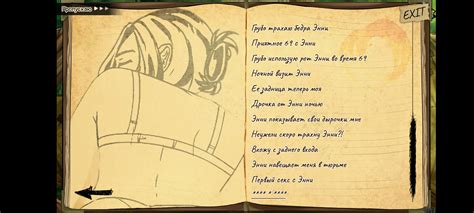 Пропускаю
EXIT
Грубо трахаю бедра Энни
Приятное 69 с Энни
Грубо использую рот Энни во время 69
Ночной визит Энни
Ее задница теперь моя
Дрочка от Энни ночью
Энни показывает свои дырочки мне
Неужели скоро трахну Энни?!
Вхожу с заднего входа
Энни навещает меня в тюрьме
Первый секс с Энни